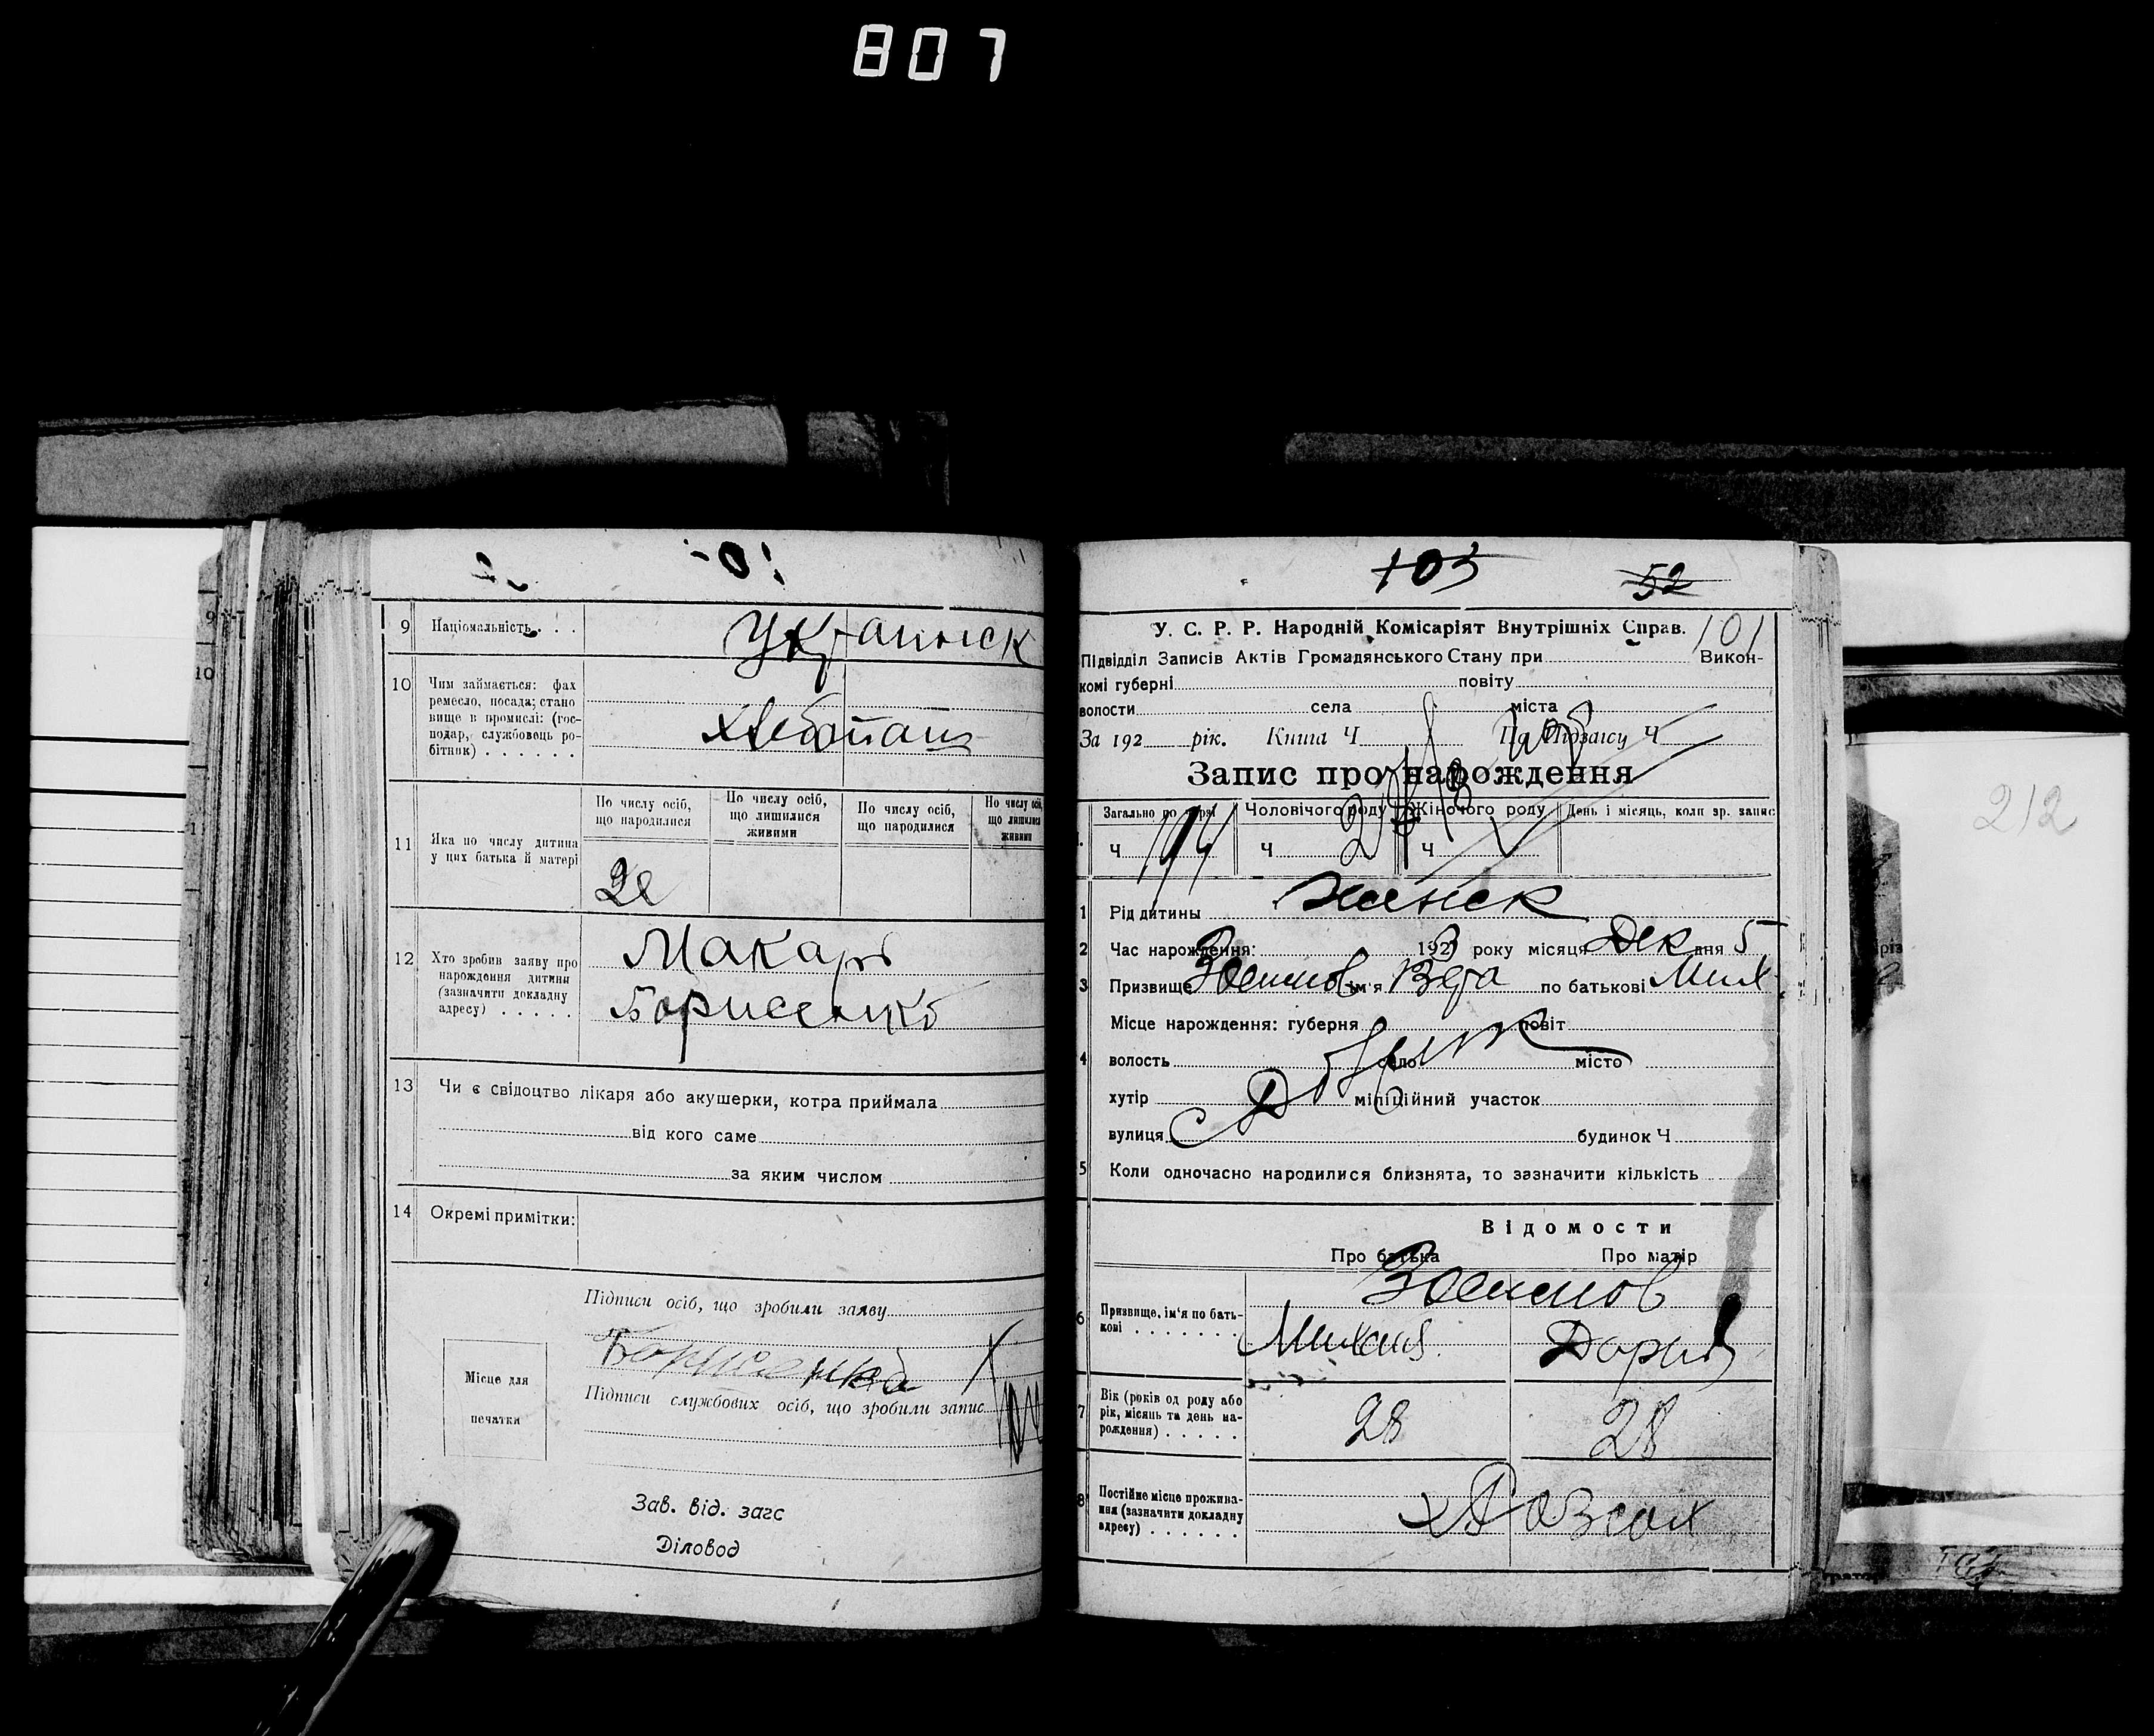 807
9 Національність . . .
Украинск
10 Чим займається: фах
ремесло, посада; стано
вище в промислі: (гос-
подар, службовець ро-
бітник) . . . . . .
хлебопаш
11 Яка по числу дитина
у цих батька й матері
По числу осіб,
що народилися
По числу осіб,
що лишилися
живими
По числу осіб,
що народилися
По числу осіб,
що лишилися
живими
2е
12 Хто зробив заяву про
нарождення дитини
(зазначити докладну
адресу) . . . . .
Макарь
Борисенко
13 Чи є свідоцтво лікаря або акушерки, котра приймала
від кого саме
за яким числом
14 Окремі примітки:
Підписи осіб, що зробили заяву
Борисенко
Підписи службових осіб, що зробили запис
Місце для
печатки
Зав. від. загс
Діловод
103 52
У. С. Р. Р. Народній Комісаріят Внутрішніх Справ. 101
Підвідділ Записів Актів Громадянського Стану при Викон-
комі губерні повіту
волости села міста
За 192 рік. Книга Ч По Підзапису Ч
Запис про нарождення
Загально по черзі Чоловічого роду Жіночого роду День і місяць, коли зр. запис
Ч Ч Ч
1 Рід дитини женск
2 Час нарождення: 1923 року місяця Дек дня 5
3 Призвище ім'я по батькові Мих
Місце нарождення: губерня повіт
4 волость село місто
хутір міліційний участок
вулиця будинок Ч
5 Коли одночасно народилися близнята, то зазначити кількість
Відомости
Про батька Про матір
6 Призвище, ім'я по бать-
кові . . . . . . .
Михаил Дария
7 Вік (років од роду або
рік, місяць та день на-
рождення) . . . . .
28 28
8 Постійне місце прожива-
ння (зазначити докладну
адресу) . . . . . .
212